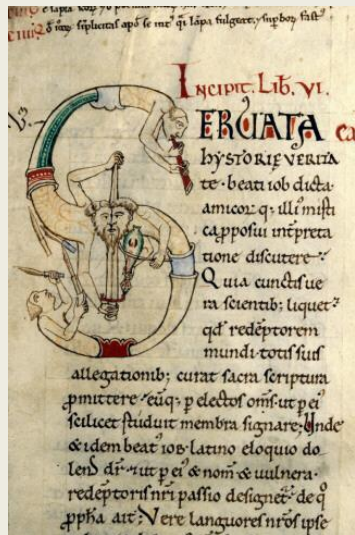 Incipit. Lib. VI.
SERVATA
hystorię verita
te · beati iob dicta
amicorq; illi misti
ca pposui intpreta
tione discutere
Quia cunctis ue
ra scientib; liquet
qd redeptorem
mundi totis suis
allegationib; curat sacra scriptura
pmittere · euq; p electos oms · ut p ei
scilicet studuit membra signare; Unde
& idem beat iob latino eloquio do
lens dr · ut p ei & nom & uulnera
redeptoris nri passio designet · de q
ppha ait; Vere languores nros ipse